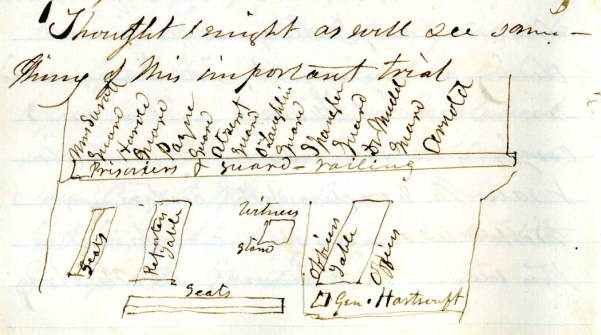 Thought I might as well see some-
thing of this important trial
Mrs Suratt
Guard
Harrold
Guard
Payne
Guard
Atzerot
Guard
O'Laughlin
Guard
Spangler
Guard
Dr Mudd
Guard
Arnold
Prisoners & Guard - railing
Seats
Reporters
Table
Witness
Stand
Officers
Table
Officers
Seats
Gen. Hartranft